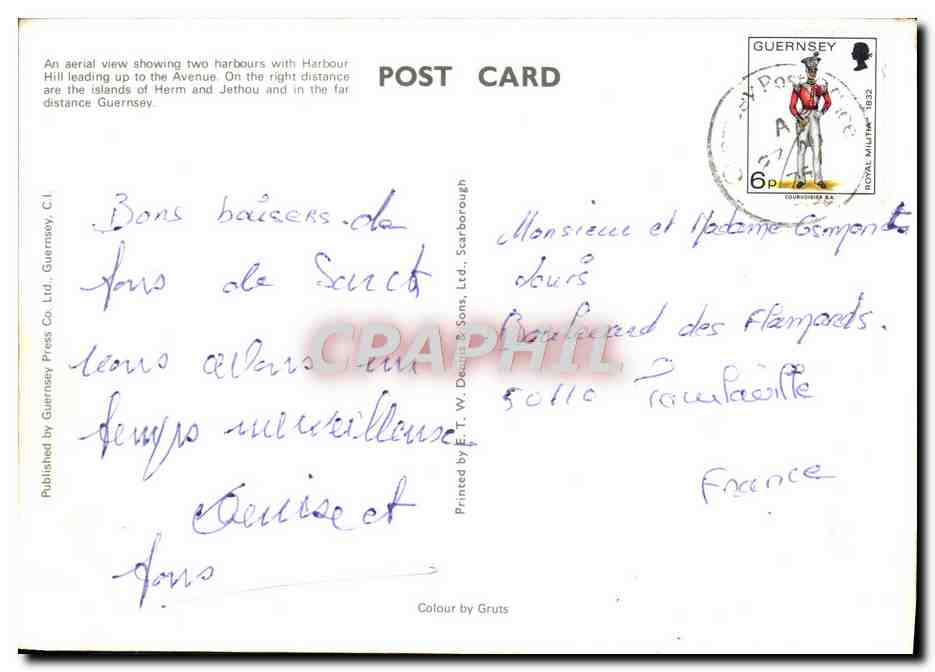 An aerial view showing two harbours with Harbour
Hill leading up to the Avenue. On the right distance
are the islands of Herm and Jethou and in the far
distance Guernsey.
POST CARD
GUERNSEY
ROYAL MILITIA 1832
6p
COURVOISIER S.A.
Published by Guernsey Press Co. Ltd., Guernsey, C.I.
Bons baisers de
tous de Sarck
nous avons un
temps merveilleuse
Denise et
tous
Printed by E. T. W. Dennis & Sons, Ltd., Scarborough
Monsieur et Madame
Louis
Boulevard des Flamands.
50110 Tourlaville
France
Colour by Gruts
CPAPHIL